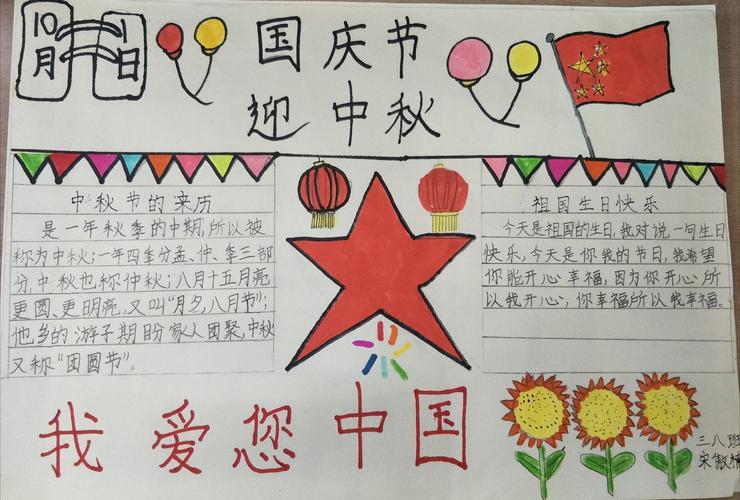 10月1日
国庆节
迎中秋
中秋节的来历
是一年秋季的中期,所以被
称为中秋;一年四季分孟、仲、季三部
分,中秋也称仲秋;八月十五月亮
更圆、更明亮,又叫"月夕,八月节";
他乡的游子期盼家人团聚,中秋
又称"团圆节"。
祖国生日快乐
今天是祖国的生日,我对说一句生日
快乐,今天是你我的节日,我希望
你能开心幸福,因为你开心所
以我开心,你幸福所以我幸福。
我爱您中国
三八班
宋傲